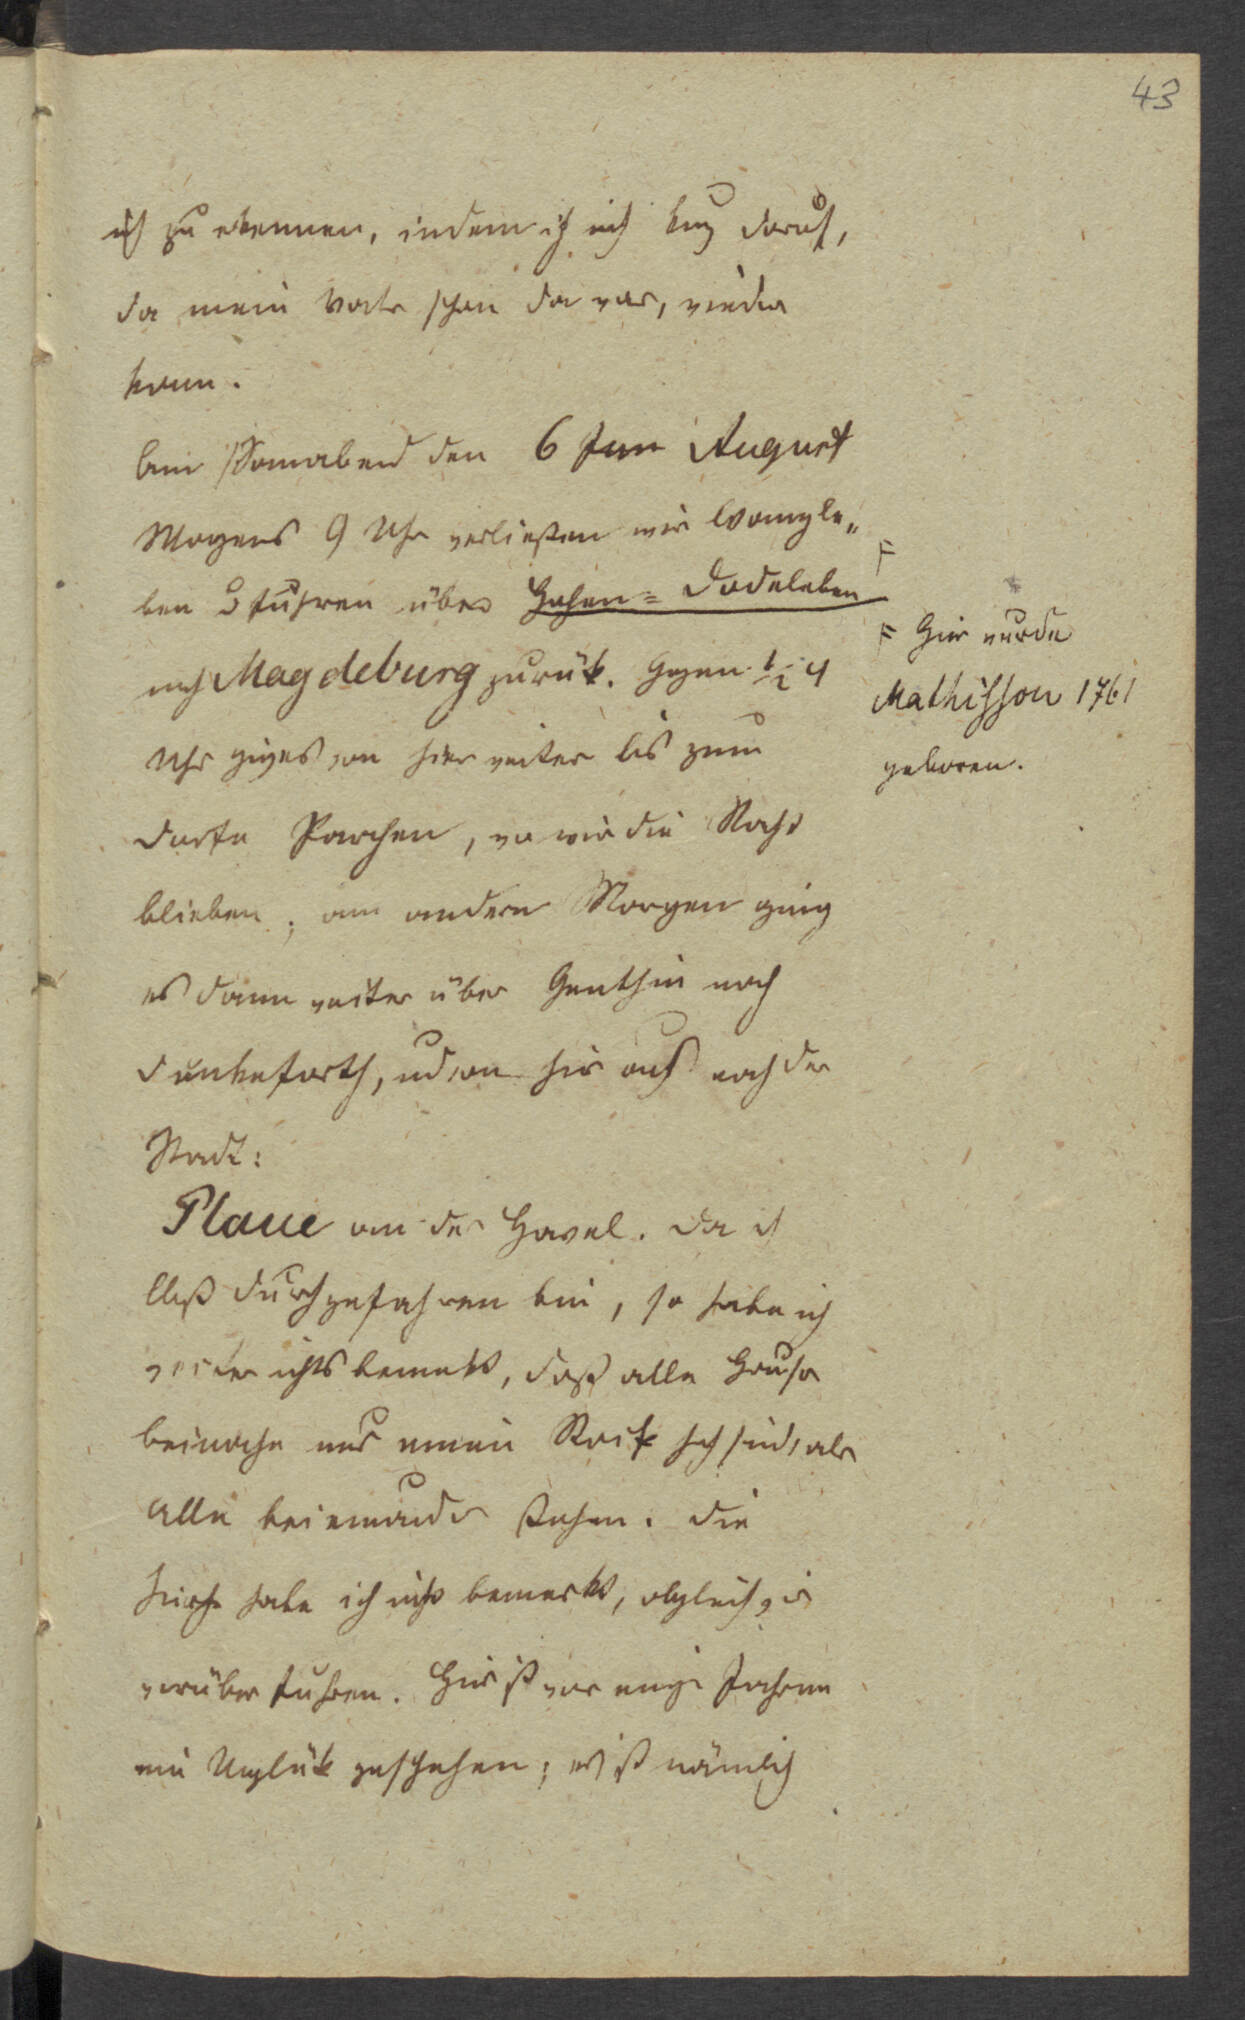 43
ich zu erkennen, indem ich erst kurz darauf,
da mein Vater schon da war, wieder
kam.
Am Sonnabend den 6 Jun August
Morgens 9 Uhr verließen wir Wanzle-
ben u fuhren über Hohen=Dodeleben F
nach Magdeburg zurük. Gegen ½ 4
Uhr ging es von hier weiter bis zum
Dorfe Parchen, wo wir die Nacht
blieben; am andern Morgen ging
es dann weiter über Genthin nach
Dunkeforth, und von hir aus nach der
Stadt:
Plaue an der Havel. Da ich
bloß durchgefahren bin, so habe ich
weiter nichts bemerkt, daß alle Häuser
beinahe nur einen Stock hoch sind, als
Alle beieinander stehen. Die
Kirche habe ich nicht bemerkt, obgleich wir
vorüber fuhren. Hier ist vor einigen Jahren
ein Unglük geschehen; es ist nämlich
F Hier wurde
Mathisson 1761
geboren.